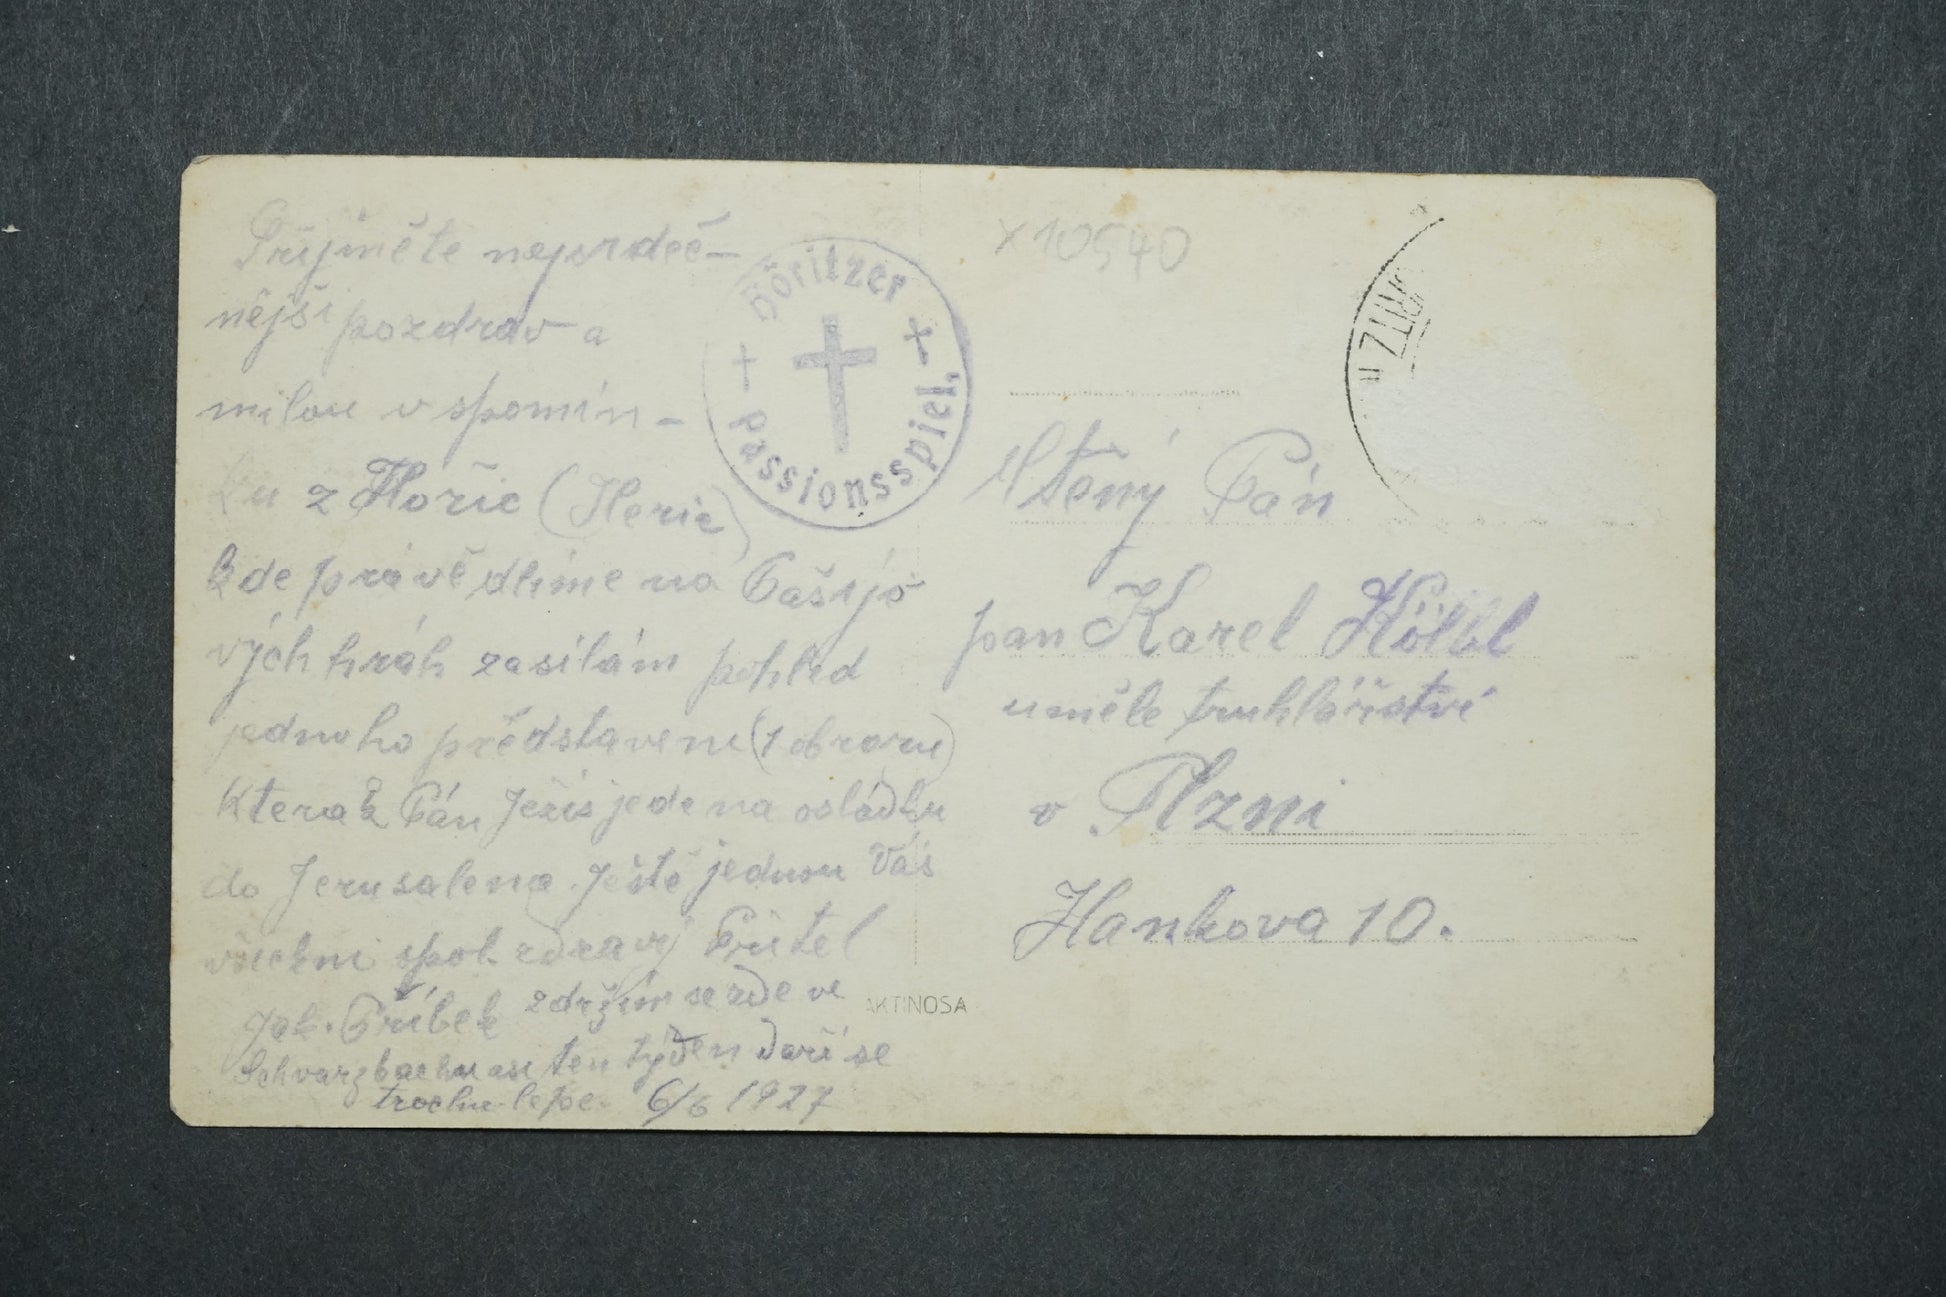 Přijměte nejsrdeč-
nější pozdrav a
milou vspomín-
ku z Hořic (Heric)
kde právě dlíme na Pašijo
vých hrách zasílám pohled
jednoho představení (1 obrazu)
kterak Pán Ježíš jede na osládku
do Jerusalema. Ještě jednou Vás
všichni spol. zdraví Přítel
Jak. Příbek zdržím se zde ve
Schvarzbachu asi ten týden daří se
trochu lépe. 6/6 1927
Höritzer
Passionsspiel.
AKTINOSA
X 10540
ÖRITZ
Ctěný Pán
pan Karel Hölbl
umělé truhlářství
v Plzni
Hankova 10.